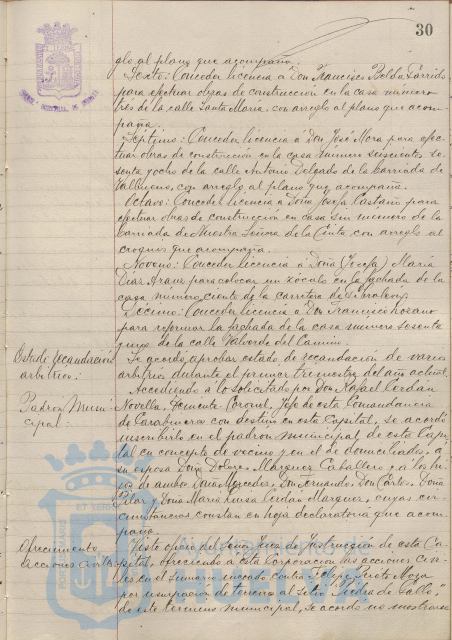 30
glo al plano que acompaña.
Sexto: Conceder licencia á Don Francisco Belda Garrido
para efectuar obras de construcción en la casa número
tres de la calle Santa María, con arreglo al plano que acom-
paña.
Séptimo: Conceder licencia á Don José Mora para efec-
tuar obras de construcción en la casa número
senta y ocho de la calle Antonio Delgado de la barriada de
con arreglo al plano que acompaña.
Octavo: Conceder licencia á Doña Josefa Castaño para
efectuar obras de construcción en casa sin número de la
barriada de Nuestra Señora de la Cinta, con arreglo al
croquis que acompaña.
Noveno: Conceder licencia á Doña (Josefa) María
Díaz para colocar un zócalo en la fachada de la
casa número ciento de la carretera de Gibraleon.
Décimo: Conceder licencia á Don Francisco Lozano
para reformar la fachada de la casa número sesenta
y uno de la calle Valverde del Camino.
Estado recaudación
arbitrios:
Se acordó aprobar estado de recaudación de varios
arbitrios durante el primer trimestre del año actual.
Padron Muni-
cipal:
Accediendo á lo solicitado por Don Rafael Cerdán
Novella, Teniente Coronel, Jefe de esta Comandancia
de Carabineros con destino en esta Capital, se acordó
inscribirlo en el padron municipal de esta Capi-
tal en concepto de vecino y en el de domiciliados, á
su esposa Doña Dolores Marquez Caballero y á los hi-
jos de ambos Doña Mercedes, Don Fernando, Don Carlos, Doña
Pilar y Doña María Luisa Cerdán Marquez, cuyas cir-
cunstancias constan en hoja declaratoria que acom-
paña.
Ofrecimiento
acciones civiles
Visto oficio del Señor Juez de Instrucción de esta Ca-
pital, ofreciendo á esta Corporación las acciones civi-
les en el sumario incoado contra Felipe Prieto Moya
por usurpación de terreno al sitio "Piedra de Gallo",
de este término municipal, se acordó no mostrarse